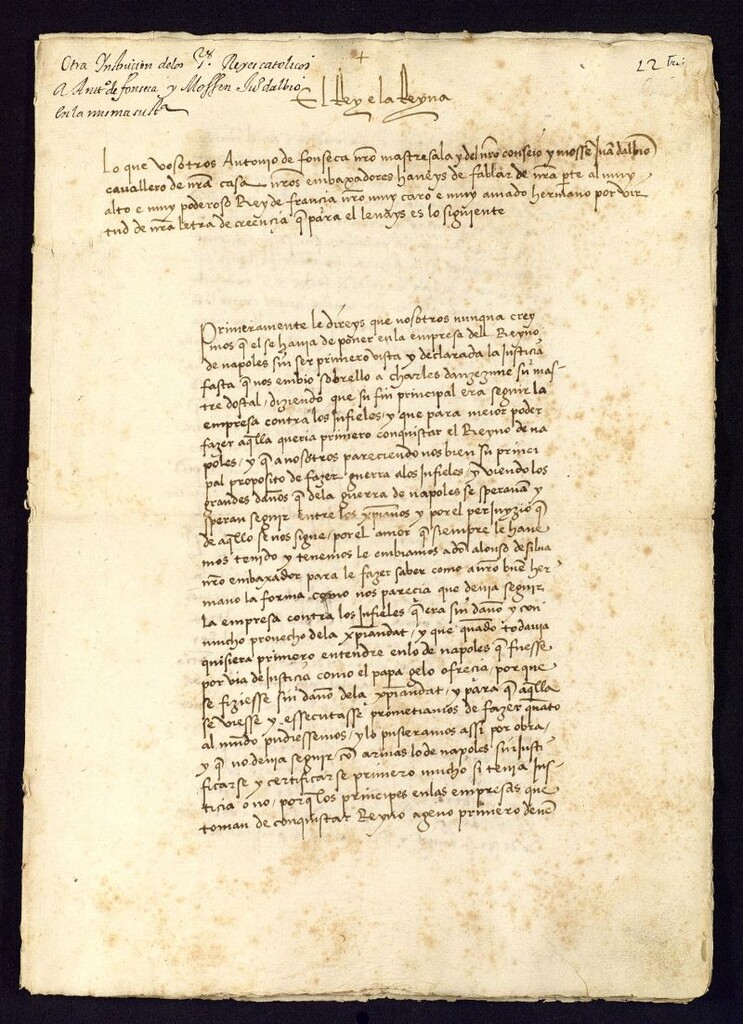 Otra Instrucion delos SS. Reyes catolicos
A Antº. de fonseca y Mossen Juº dalbio
en la misma
12
El Rey e la Reyna
Lo que vosotros Antonio de fonseca nro mastresala y del nro consejo y mossen Juan dalbio
cavallero de nra casa nros embaxadores haveys de fablar de nra pte al muy
alto e muy poderoso Rey de francia nro muy caro e muy amado hermano por vir
tud de nra letra de creencia q para el levays es lo siguiente
Primeramente le direys que nosotros nunqua crey
mos q el se havia de poner en la empresa del Reyno
de napoles sin ser primero vista y declarada la Justicia
fasta q nos embio sobrello a charles danzezune su mas-
tre dostal / diziendo que su fin principal era seguir la
empresa contra los Infieles / y que para mejor poder
fazer aqlla queria primero conquistar el Reyno de na
poles / y q a nosotros pareciendo nos bien su princi
pal proposito de fazer guerra alos Infieles / y viendo los
grandes daños q dela guerra de napoles se speravan y
speran seguir entre los xpianos y por el perjuyzio q
de aqllo se nos sigue / por el amor q siempre le have
mos tenido y tenemos le embiamos a do alonso de silva
nro embaxador para le fazer saber como a nro bue her
mano la forma como nos parecia que devia seguir
la empresa contra los Infieles q era sin daño y con
mucho provecho dela xpiandat / y que quado todavia
quisiera primero entendre enlo de napoles q fuesse
por via de Justicia como el papa gelo ofrecia / por que
se fiziesse sin daño dela xpiandat / y para q aqlla
se viesse y essecutasse prometiamos de fazer quato
al mudo pudiessemos / y lo pusieramos assi por obra /
y q no devia seguir co armas lo de napoles sin Justi
ficarse y certificarse primero mucho si tenia Jus-
ticia o no / porq los principes enlas empresas que
toman de conquistar Reyno ageno primero deve